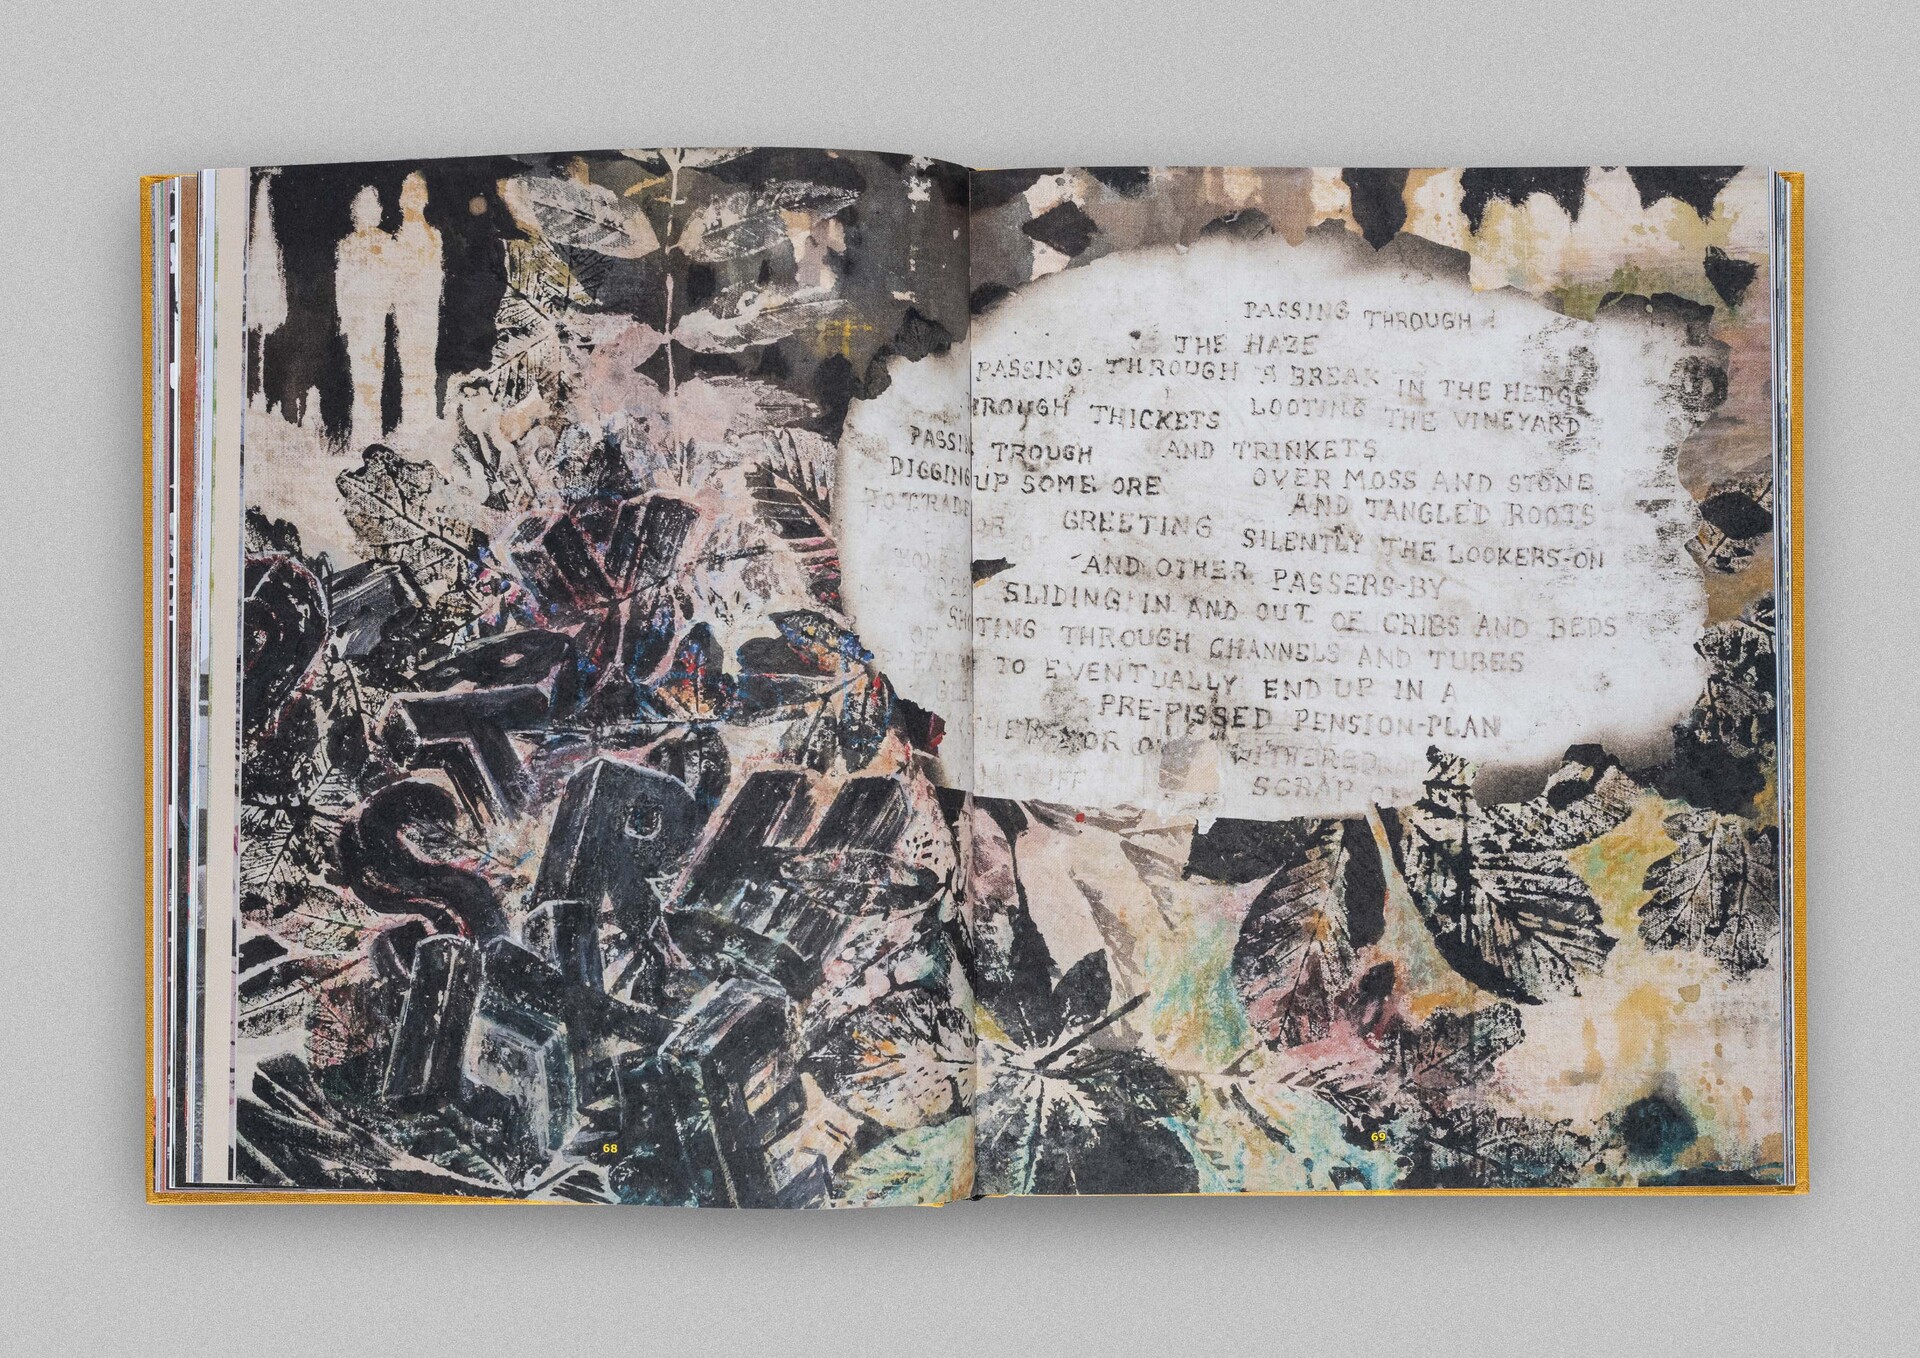 PASSING THROUGH
THE HAZE
PASSING THROUGH A BREAK IN THE HEDGE
THROUGH THICKETS LOOTING THE VINEYARD
PASSIN TROUGH AND TRINKETS
DIGGING UP SOME ORE OVER MOSS AND STONE
TO TRADE AND TANGLED ROOTS
FOR GREETING SILENTLY THE LOOKERS-ON
AND OTHER PASSERS-BY
SLIDING IN AND OUT OF CRIBS AND BEDS
TING THROUGH CHANNELS AND TUBES
OF
TO EVENTUALLY END UP IN A
PRE-PISSED PENSION-PLAN
OR WITHERED
SCRAP OF
68
69